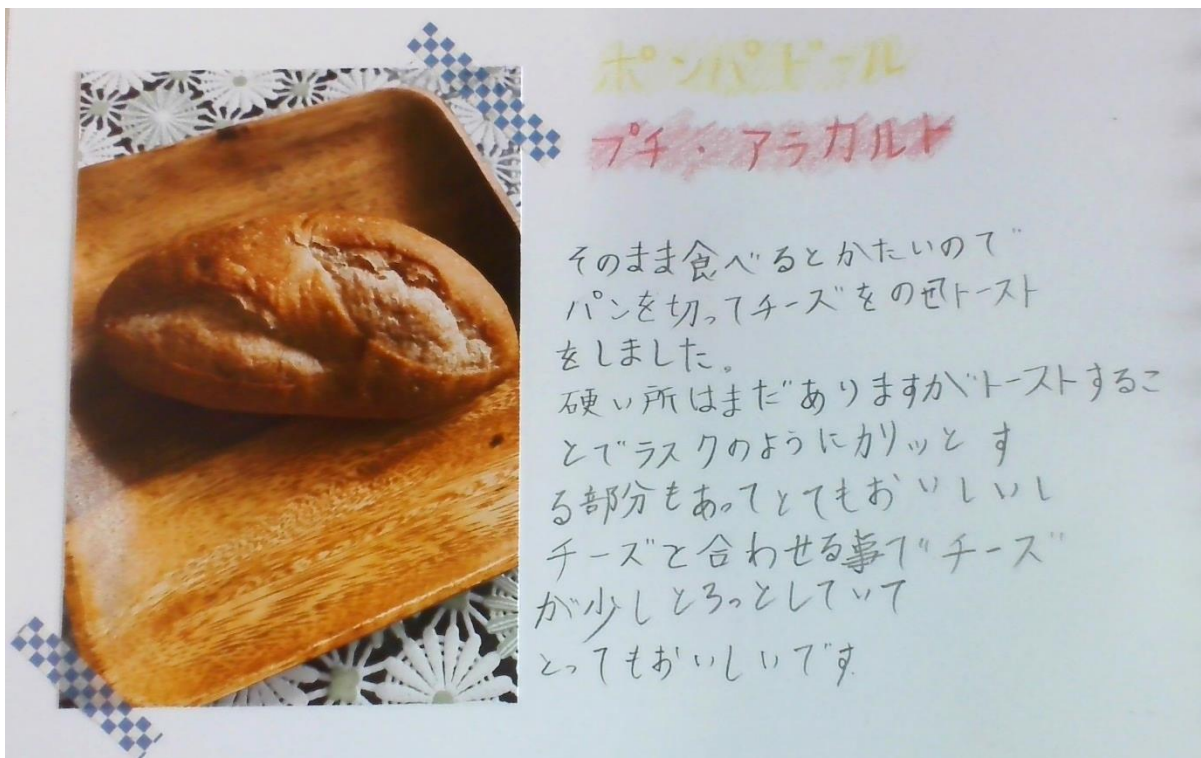 ポンパドール
プチ・アラカルト
そのまま食べるとかたいので
パンを切ってチーズをのせトースト
をしました。
硬い所はまだありますがトーストするこ
とでラスクのようにカリッとす
る部分もあってとてもおいしいし
チーズと合わせる事でチーズ
が少しとろっとしていて
とってもおいしいです